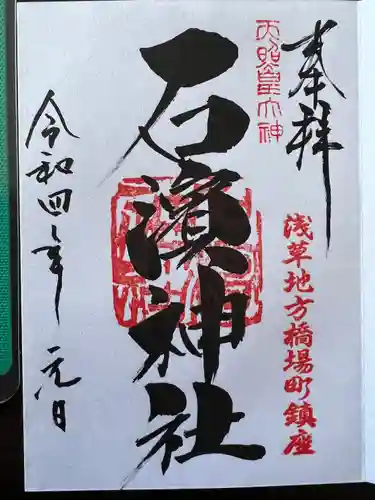 奉拝
天照皇大神
浅草地方橋場町鎮座
石濱神社
令和四年 元日